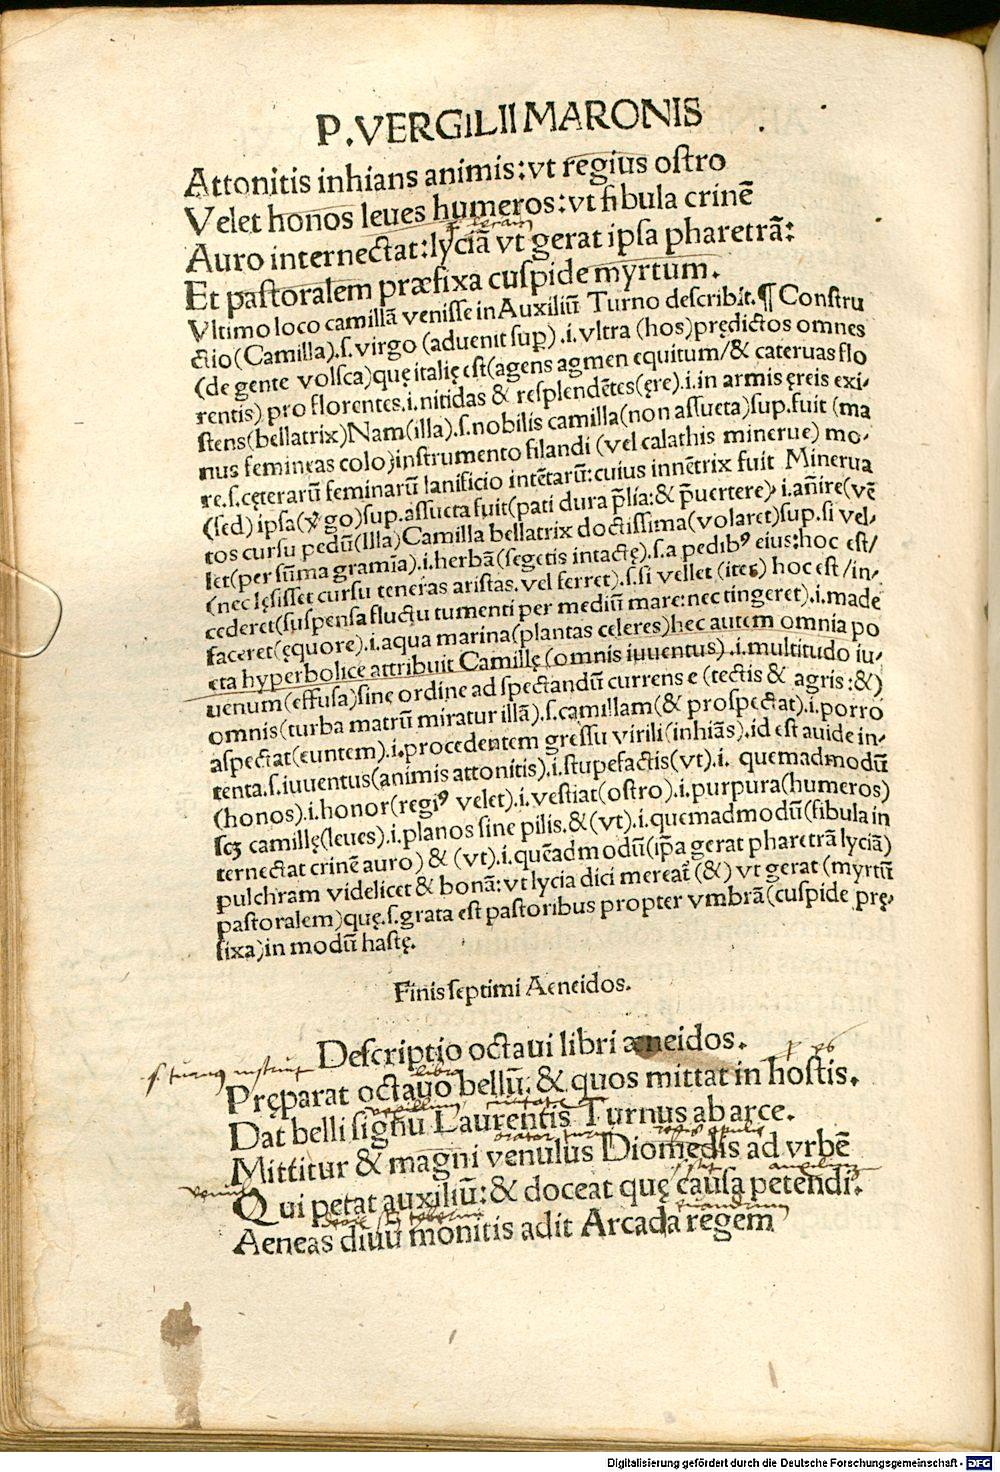 P. VERGILII MARONIS
Attonitis inhians animis: vt regius oſtro
Velet honos leues humeros: vt fibula crinē
Auro internectat: lyciā vt gerat ipſa pharetrā:
Et paſtoralem præfixa cuſpide myrtum.
Vltimo loco camillā veniſſe in Auxiliū Turno deſcribit. ¶ Conſtru
ctio (Camilla).ſ. virgo (aduenit ſuꝑ).i. vltra (hos) prędictos omnes
(de gente volſca) quę italię eſt (agens agmen equitum/& cateruas flo
rentis) pro florentes.i. nitidas & reſplendētes (ęre).i. in armis ęreis exi-
ſtens (bellatrix) Nam (illa).ſ. nobilis camilla (non aſſueta) ſup. fuit (ma
nus femineas colo) inſtrumento filandi (vel calathis minerue) mo-
re.ſ. cęterarū feminarū lanificio intētarū: cuius innētrix fuit Minerua
(ſed) ipſa (v̓go) ſup. aſſueta fuit (pati dura p̄lia: & p̄uertere).i. an̄ire (vē
tos curſu pedū (Illa) Camilla bellatrix doctiſſima (volaret) ſup. ſi vel-
let (per ſūma gramīa).i. herbā (ſegetis intactę).ſ. a pedibꝰ eius: hoc eſt/
(nec lęſiſſet curſu teneras ariſtas. vel ferret).ſ. ſi vellet (iter) hoc eſt/in-
cederet (ſuſpenſa fluctu tumenti per mediū mare: nec tingeret).i. made
faceret (ęquore).i. aqua marina (plantas celeres) hec autem omnia po
eta hyperbolice attribuit Camillę (omnis iuuentus).i. multitudo iu-
uenum (effuſa) ſine ordine ad ſpectandū currens e (tectis & agris: &)
omnis (turba matrū miratur illā).ſ. camillam (& proſpectat).i. porro
aſpectat (euntem).i. procedentem greſſu virili (inhiās).id eſt auide in-
tenta.ſ. iuuentus (animis attonitis).i. ſtupefactis (vt).i. quemadmodū
(honos).i. honor (regiꝰ velet).i. veſtiat (oſtro).i. purpura (humeros)
ſcꝫ camillę (leues).i. planos ſine pilis. & (vt).i. quemadmodū (fibula in
ternectat crinē auro) & (vt).i. quēadmodū (ip̄a gerat pharetrā lyciā)
pulchram videlicet & bonā: vt lycia dici mereat᷑ (&) vt gerat (myrtū
paſtoralem) quę.ſ. grata eſt paſtoribus propter vmbrā (cuſpide prę-
fixa) in modū haſtę.
Finis ſeptimi Aeneidos.
Deſcriptio octaui libri æneidos.
ſ. turnus inſtruit libro
Pręparat octauo bellū: & quos mittat in hoſtis.
vexillum ciuitatis
Dat belli ſignū Laurentis Turnus ab arce.
orator turni regis apulie
Mittitur & magni venulus Diomedis ad vrbē
venulus auxilium
Qui petat auxiliū: & doceat quę cauſa petendi.
euandrum
Aeneas diuū monitis adit Arcada regem
Digitalisierung gefördert durch die Deutsche Forschungsgemeinschaft - DFG